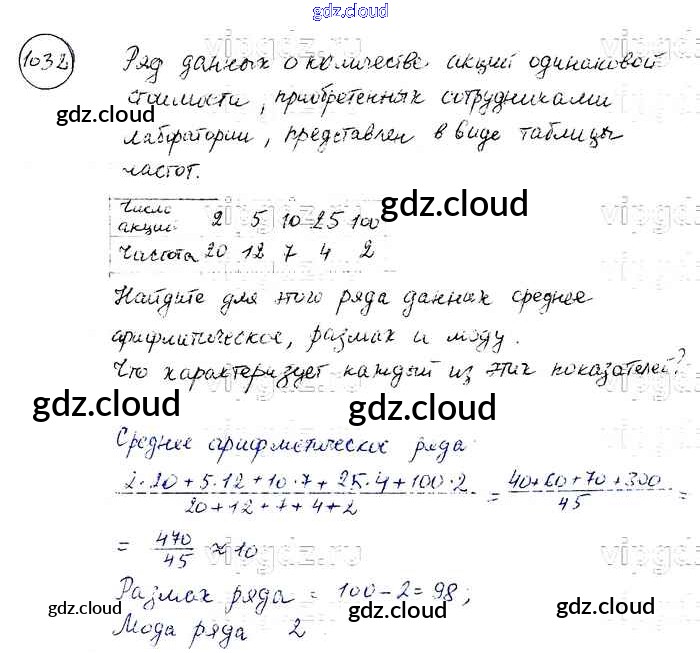 gdz.cloud
1032 Ряд данных о количестве акций одинаковой
стоимости, приобретенных сотрудниками
gdz.cloud
лаборатории, представлен в виде таблицы
частот.
Число акций 2 5 10 25 100
gdz.cloud
Частота 20 12 7 4 2
Найдите для этого ряда данных среднее
арифметическое, размах и моду.
Что характеризует каждый из этих показателей?
gdz.cloud gdz.cloud
Среднее арифметическое ряда
2·20+5·12+10·7+25·4+100·2 / 20+12+7+4+2 = 40+60+70+300 / 45 =
gdz.cloud gdz.cloud
= 470/45 ≈ 10
Размах ряда = 100-2=98;
gdz.cloud gdz.cloud gdz.cloud
Мода ряда 2